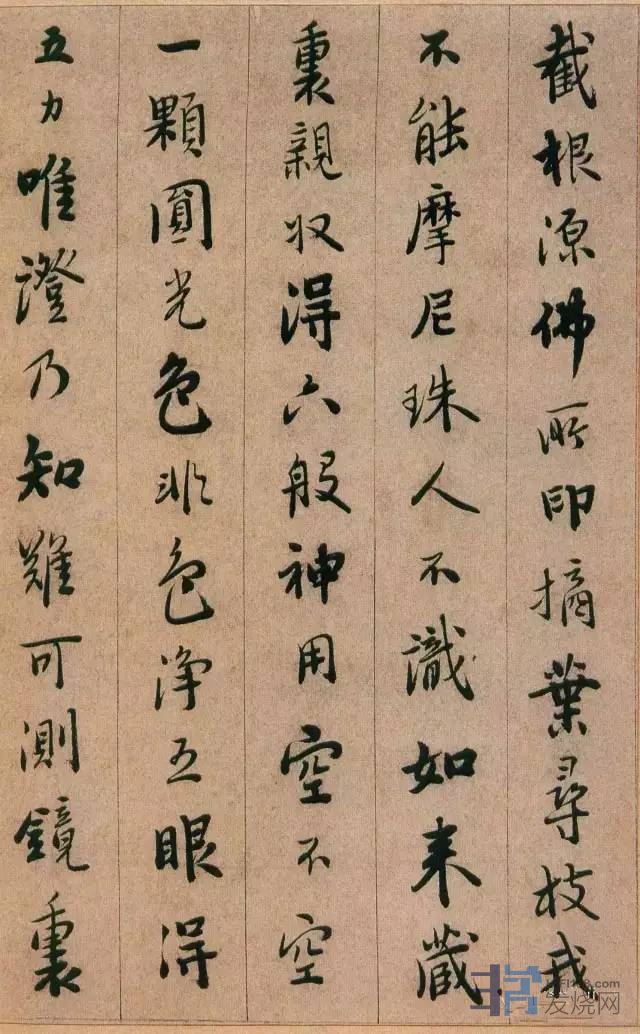 截根源佛所印摘葉尋枝我
不能摩尼珠人不識如来藏
裏親収得六般神用空不空
一顆圓光色非色净五眼得
五力唯澄乃知難可測鏡裏
发烧网